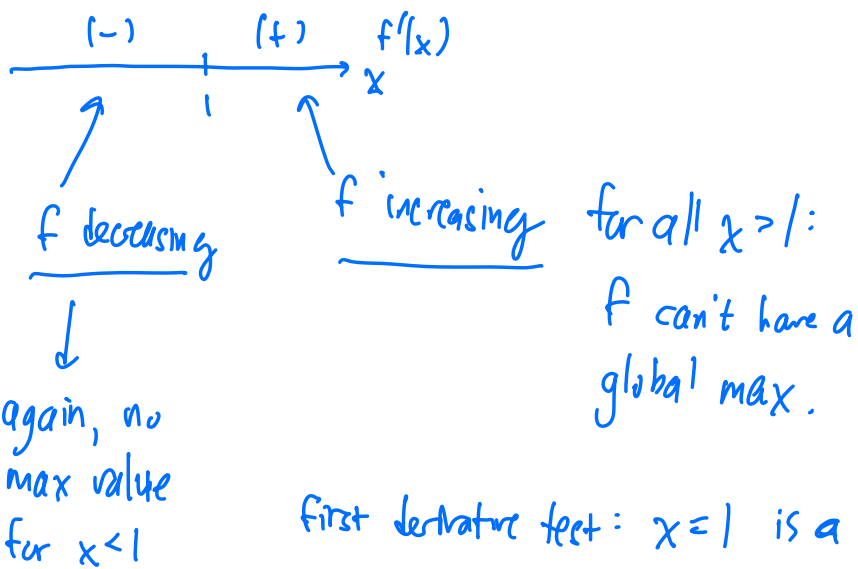 (-) (+) f'(x)
x
1
f decreasing
f increasing
for all x > 1:
f can't have a
global max.
again, no
max value
for x < 1
first derivative test: x = 1 is a